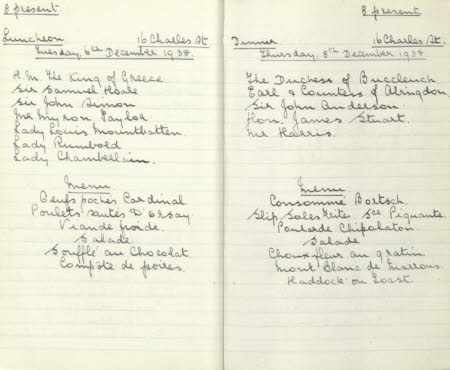 8 present
Luncheon 16 Charles St.
Tuesday, 6th December 1938.
H.M. The King of Greece
Sir Samuel Hoare
Sir John Simon
Mr Myron Taylor
Lady Louis Mountbatten
Lady Rumbold
Lady Chamberlain.
Menu
Oeufs pochés Cardinal
Poulets sautés D'Orsay
Viande froide.
Salade
Soufflé au Chocolat
Compôte de poires.
8 present
Dinner 16 Charles St.
Thursday, 8th December 1938.
The Duchess of Buccleuch
Earl & Countess of Abingdon
Sir John Anderson.
Hon. James Stuart.
Mr Harris.
Menu
Consommé Bortsch.
Slip Soles Frites. Sce Piquante.
Poularde Chipolaton
Salade
Chouxfleur au gratin
Mont Blanc de Marrons
Haddock on Toast